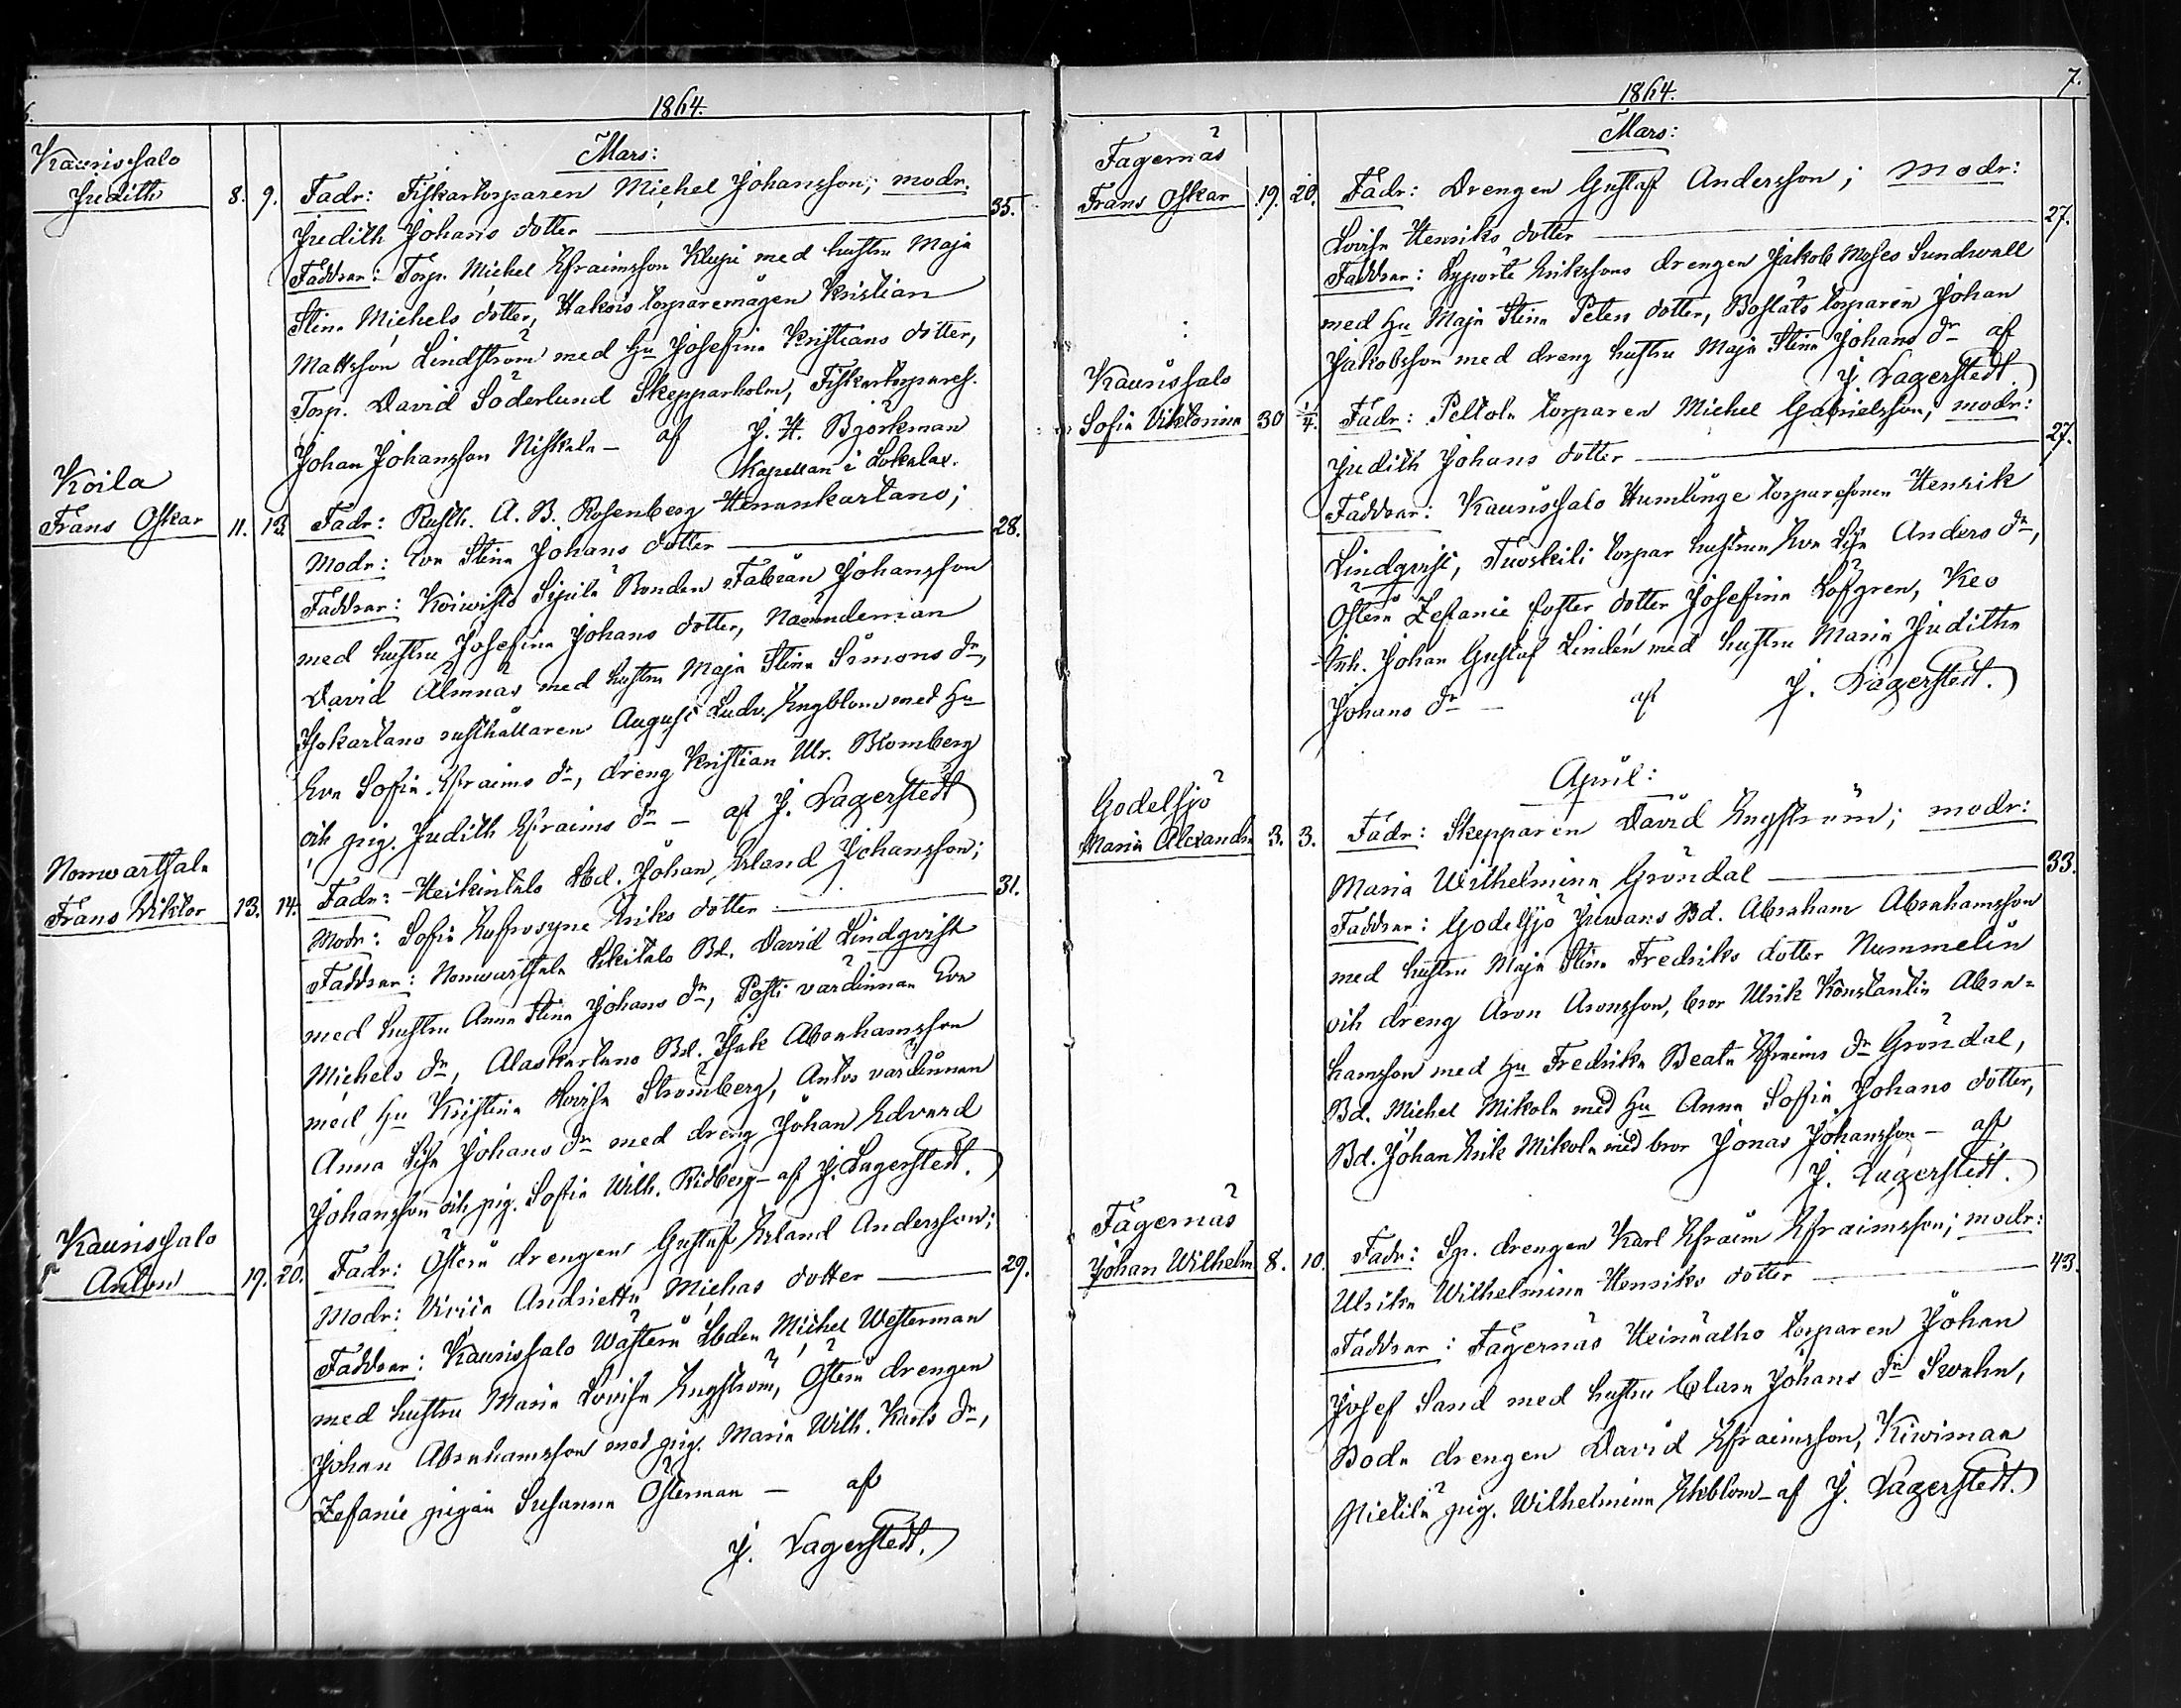 6.
1864.
Mars:
Kaurissalo
Judith 8. 9. Fadr: Fiskartorparen Michel Johansson; modr: 35.
Judith Johans dotter
Faddrar: Torp. Michel Efraimsson Klupi med hustru Maja
Stina Michels dotter, Hakois torparemågen Kristian
Mattsson Lindström med Hu Josefina Kristians dotter,
Torp. David Söderlund Skepparholm, Fiskartorpares.
Johan Johansson Niskala – af J. H. Björkman
Kapellan i Lokalax.
Koila
Frans Oskar 11. 13. Fadr: Rusth. A. B. Rosenberg Hemmkartano;
Modr: Eva Stina Johans dotter 28.
Faddrar: Koiwisto Sipilä Bonden Fabian Johansson
med hustru Josefina Johans dotter, Nämndeman
David Älmnäs med hustru Maja Stina Simons dr,
Isokartano rusthållaren August Ludv. Engblom med Hu
Eva Sofia Efraims dr, dreng Kristian Ulr. Blomberg
och pig. Judith Efraims dr – af J. Lagerstedt
Nomwartsala
Frans Viktor 13. 14. Fadr: Heikintalo Bd. Johan Erland Johansson; 31.
Modr: Sofia Eufrosyne Eriks dotter
Faddrar: Nomwartsala Ukitalo Bd. David Lindqvist
med hustru Anna Stina Johans dr, Posti värdinnan Eva
Michels dr, Alaskartano Bd. Isak Abrahamsson
med Hu Kristina Lovisa Strömberg, Antos värdinnan
Anna Lisa Johans dr med dreng Johan Edvard
Johansson och pig. Sofia Wilh. Ridberg – af J. Lagerstedt.
Kaurissalo
Anton 19. 20. Fadr: Östern drengen Gustaf Erland Andersson; 29.
Modr: Andrietta Michas dotter
Faddrar: Kaurissalo Wästern Lbden Michel Westerman
med hustru Maria Lovisa Engström, Östern drengen
Johan Abrahamsson med pig. Maria Wilh. Karls dr,
Zefanie pigan Susanna Österman – af
J. Lagerstedt.
7.
1864.
Mars:
Fagernäs
Frans Oskar 19. 20. Fadr: Drengen Gustaf Andersson; modr:
Lovisa Henriks dotter 27.
Faddrar: Lypörtö Erikssons drengen Jakob Moses Sundwall
med Hu Maja Stina Peters dotter, Boslåts torparen Johan
Jakobsson med dreng hustru Maja Stina Johans dr af
J. Lagerstedt.
Kaurissalo
Sofia Viktorina 30 1/4. Fadr: Peltola torparen Michel Gabrielsson; modr:
Judith Johans dotter 27.
Faddrar: Kaurissalo Humlinge torparesonen Henrik
Lindqvist, Tuoskeili torpar hustrun Eva Lisa Anders dr,
Östern Zefanie foster dotter Josefina Löfgren, Keo
Inh. Johan Gustaf Lindén med hustru Maria Juditha
Johans dr – af J. Lagerstedt.
April:
Godelsjö
Maria Alexandra 3. 3. Fadr: Skepparen David Engström; modr:
Maria Wilhelmina Gröndal 33.
Faddrar: Godelsjö Juwans Bd. Abraham Abrahamsson
med hustru Maja Stina Fredriks dotter Nummelin
och dreng Aron Aronsson, bror Ulrik Konstantin Abra-
hamsson med Hu Fredrika Beata Efraims dr Gröndal,
Bd. Michel Mikola med Hu Anna Sofia Johans dotter,
Bd. Johan Erik Mikola med bror Jonas Johansson – af
J. Lagerstedt.
Fagernäs
Johan Wilhelm 8. 10. Fadr: Sp. drengen Karl Efraim Efraimsson; modr:
Ulrika Wilhelmina Henriks dotter 43.
Faddrar: Fagernäs Heinäalho torparen Johan
Josef Sand med hustru Clara Johans dr Swahn,
Boda drengen David Efraimsson, Kiwimaa
Nietilä pig. Wilhelmina Ekblom – af J. Lagerstedt.